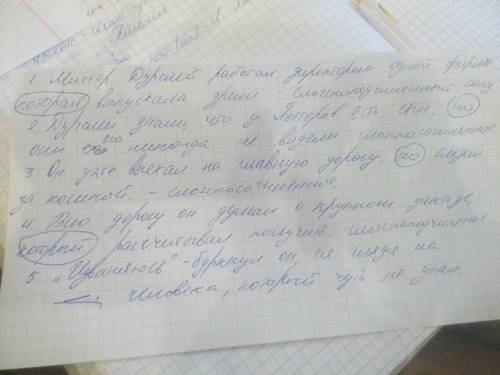 1. Мистер Дурслей работал директором одной фирмы,
которая выпускала дрели - сложноподчиненное
2. Дурсли знали, что у Поттеров есть сын, но
они его никогда не видели - сложносочиненное
3. Он уже выехал на главную дорогу, но
за - сложносочиненное.
4. Всю дорогу он думал о крупном заказе,
который рассчитывал получить. сложноподчиненное
5. „Извиняюсь" - буркнул он, не глядя на
человека, который чуть не упал.